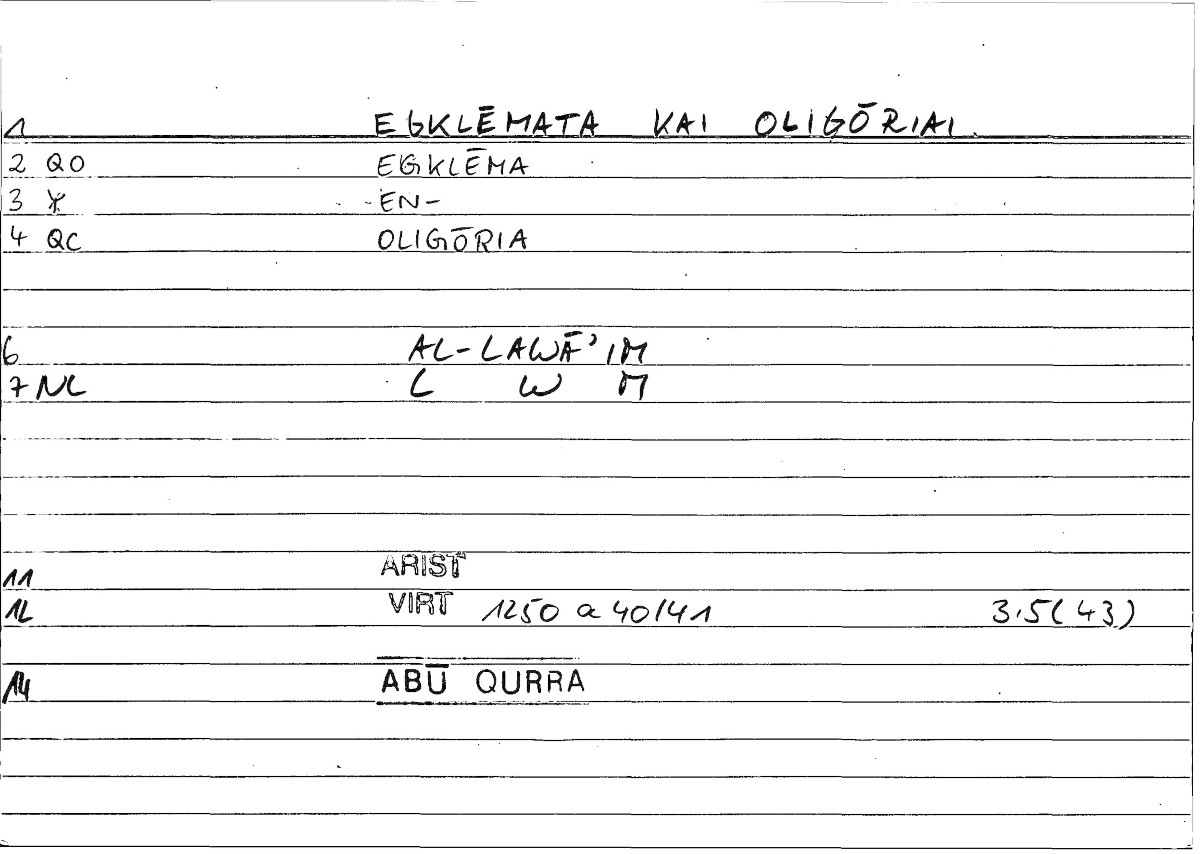 1 EGKLĒMATA KAI OLIGŌRIAI.
2 QO EGKLĒMA
3 -EN-
4 QC OLIGŌRIA
6 AL-LAWĀ'IM
7 NL L W M
11 ARIST
12 VIRT 1250 a 40/41 3.5(43)
14 ABŪ QURRA